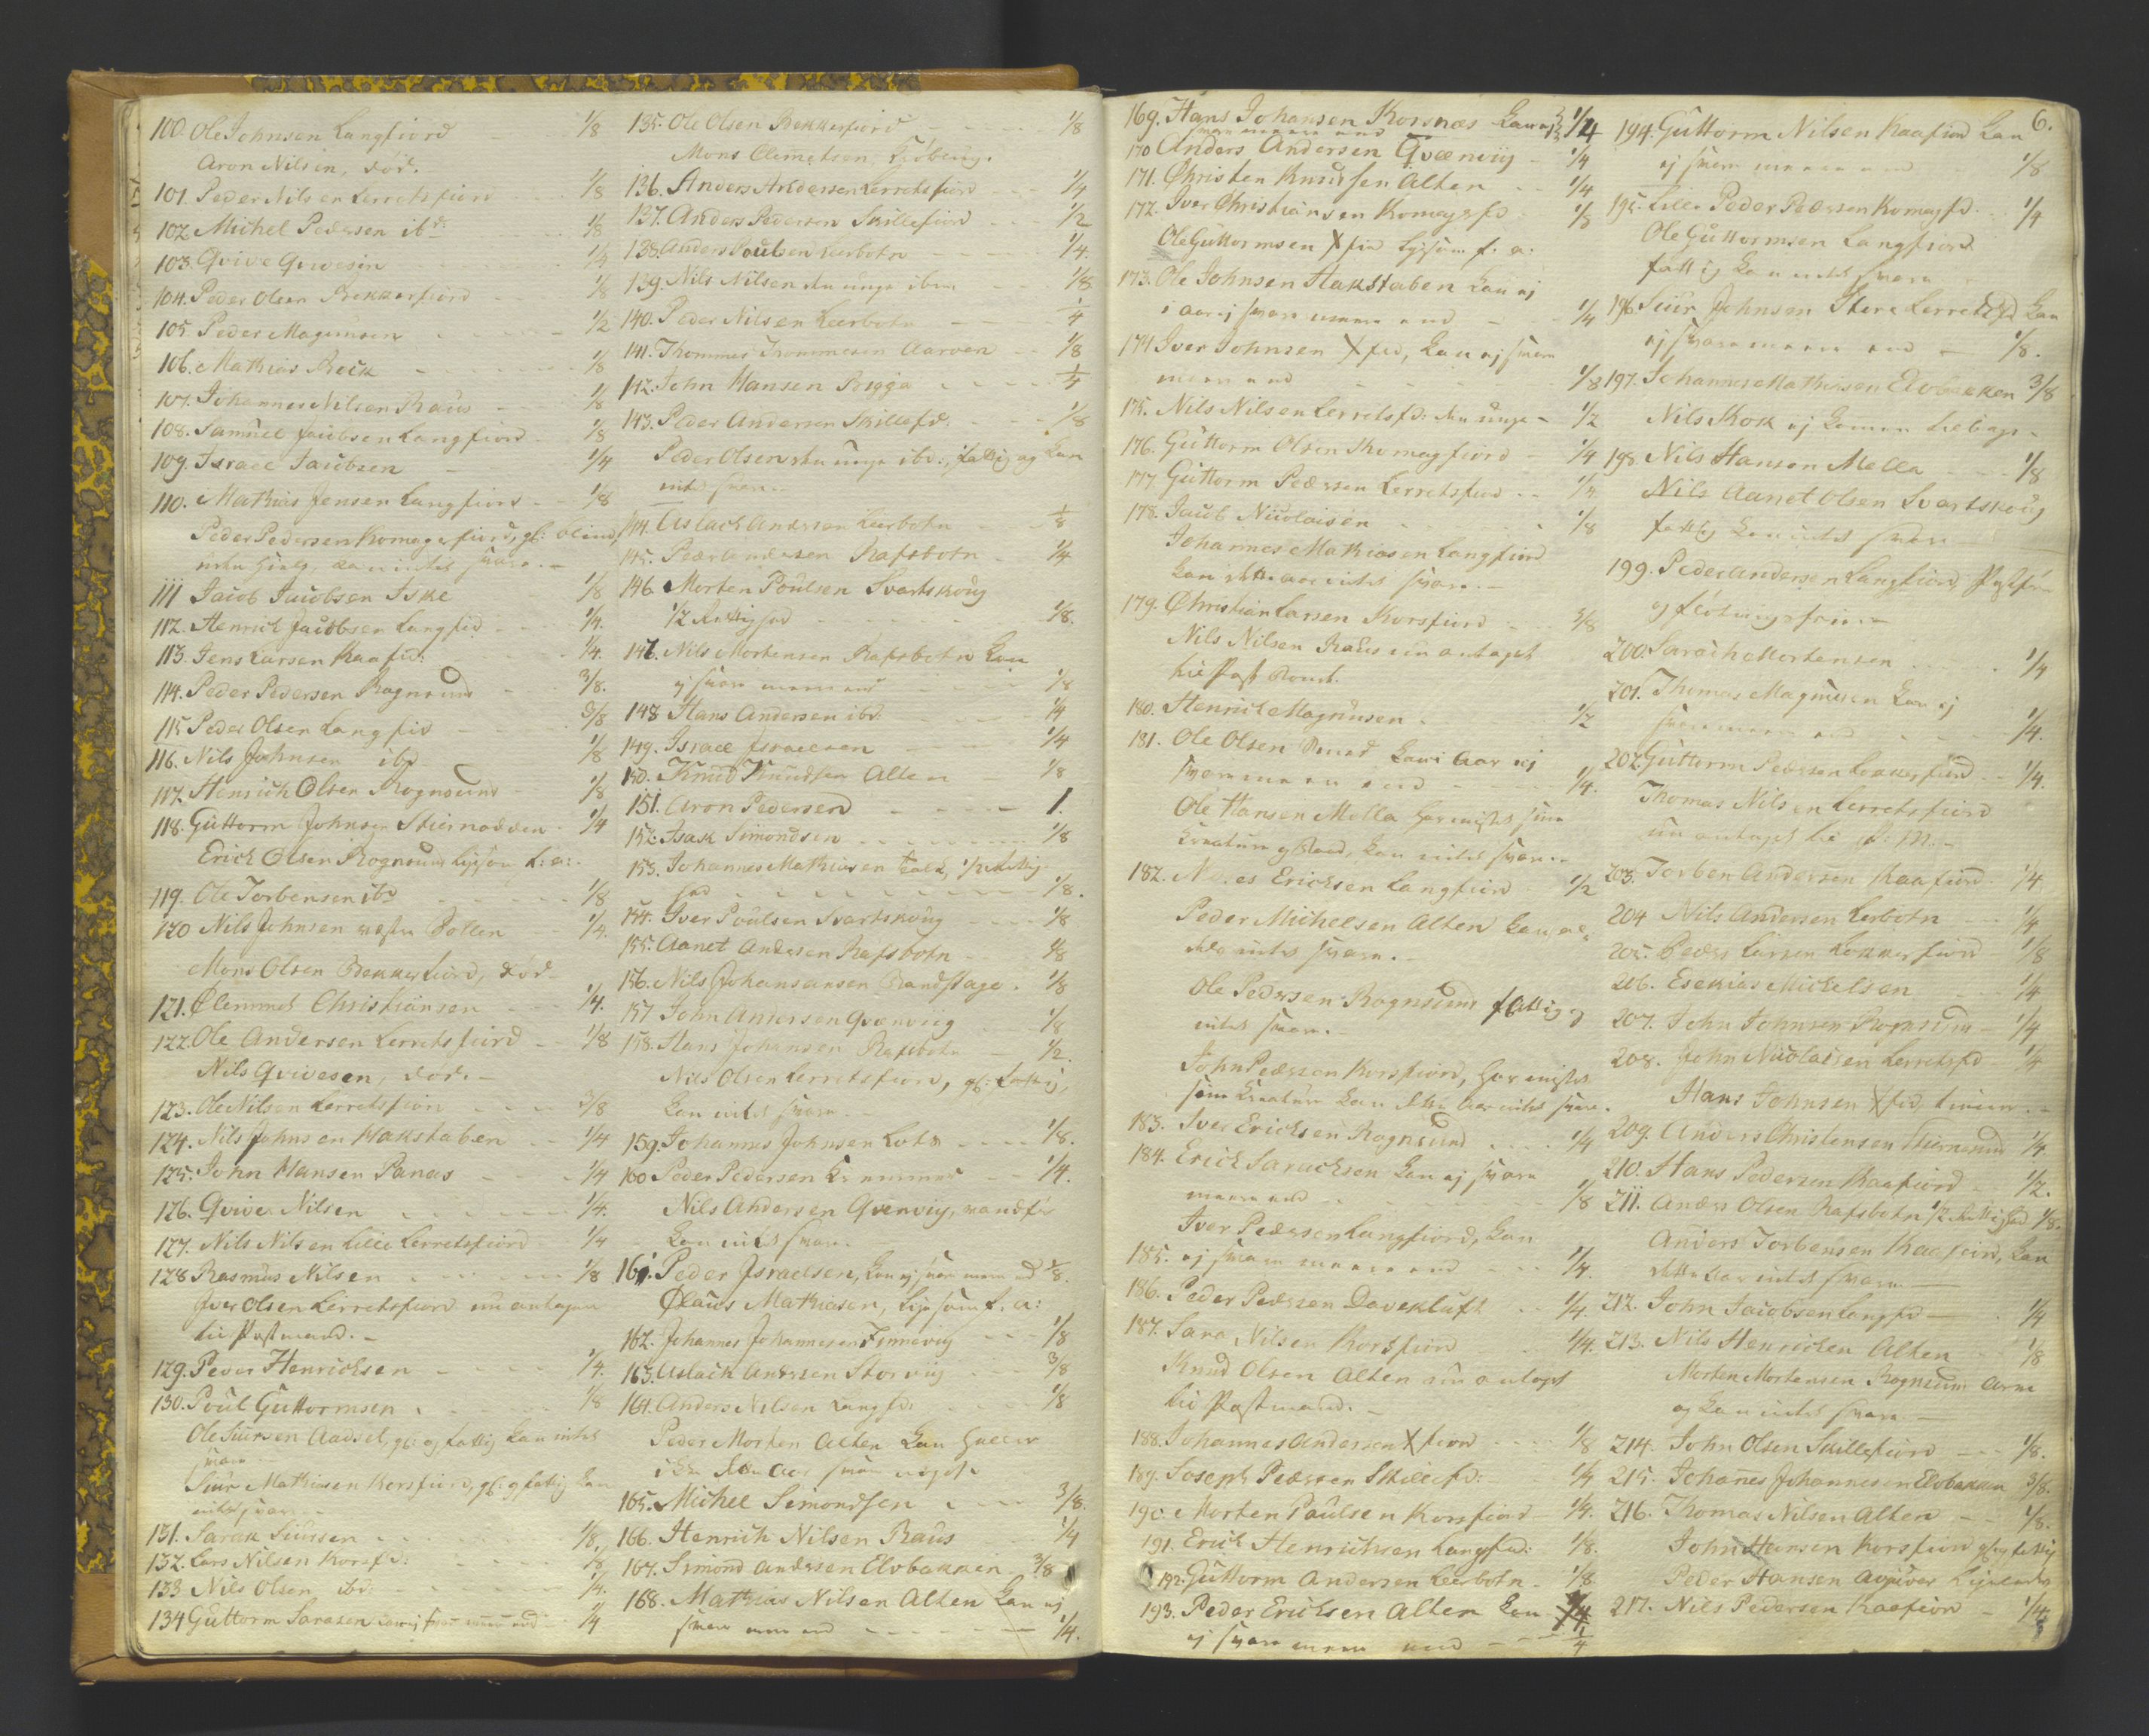 100. Ole Johnsen Langfiord - 1/8
Aron Nilsen, død.
101. Peder Nilsen Lerretsfiord 1/8
102 Michel Pedersen ibd: 1/8
103. Qvive Qvivesen 1/4
104. Peder Olsen Bekkerfiord - 1/8
105 Peder Magnusen - 1/2
106. Mathias Beck - 1/8
107. Johannes Nilsen Raus - 1/8
108. Samuel Jacobsen Langfiord 1/8
109. Israel Jacobsen - 1/4
110. Mathias Jensen Langfiord - 1/8
Peder Pedersen Komagerfiord, gl: blind,
uden hielp, kan intet svare. -
111 Jacob Jacobsen Iske 1/8
112. Henrich Jacobsen Langfiod - 1/4.
113. Jens Larsen Kaafid: 1/4.
114. Peder Pedersen Rognsund - 3/8.
115 Peder Olsen Langfid - 3/8
116. Nils Johnsen ibd 1/8
117. Henrich Olsen Rognsund - 1/8
118. Guttorm Johnsen Stiernødden - 1/4
Erich Olsen Rognsund ligesom f: a:.
119. Ole Torbensen ibd - 1/8
120 Nils Johnsen Pollen - 1/4.
Mons Olsen Bekkerfiord, død.
121. Clemmet Christiansen - 1/4.
122. Ole Andersen Lerretsfiord - 1/8
Nils Qvivesen, død. -
123. Ole Nilsen Lerretsfiord - 3/8
124. Nils Johnsen Hakstaben - 1/4
125. John Hansen Panas - 1/4
126. Qvive Nilsen - 1/4.
127. Nils Nilsen Lille Lerretsfiord 1/4
128 Rasmus Nilsen - 1/8
Iver Olsen Lerretsfiord nu antagen
til Postmand. -
129. Peder Henrichsen - 1/4.
130. Poul Guttormsen - 1/8
Ole Siursen Aadsel, gl: og fattig kan intet
svare
Siur Mathisen Korsfiord, gl: og fattig kan
intet svare
131. Sarak Siursen - 1/8.
132. Lars Nilsen Korsfd: - 1/8
133 Nils Olsen ibd: - 1/4.
134 Guttorm Sarasen kan ej svare meere end - 1/4
135. Ole Olsen Bekkerfiord - 1/8
Mons Clemetsen
136. Anders Andersen Lerretsfiord - 1/4
137. Anders Pedersen Skillefiord - 1/2
138. Anders Poulsen Leerbotn - 1/4.
139. Nils Nilsen den unge ibm - 1/8
140. Peder Nilsen Leerbotn - 1/4
141. Thommes Thommesen Aarøen - 1/8
142. John Hansen Rigga - 1/4
143. Peder Andersen Skillefd: - 1/8
Peder Olsen den unge ibd:, fattig og kan
intet svare. -
144. Aslach Andersen Leerbotn - 1/8
145. Peder Andersen Rafsbotn - 1/4
146. Morten Poulsen Svartskoug
1/2 Rettighed - 1/8.
147. Nils Mortensen Rafsbotn kan
ej svare meere end - 1/8
148 Hans Andersen ibd - 1/4
149. Israel Israelsen - 1/4
150. Knud Knudsen Alten - 1/8
151. Aron Pedersen - 1.
152. Isak Simondsen - 1/8
153. Johannes Mathisen 1/2 Rettig-
hed - 1/8.
154. Iver Poulsen Svartskoug - 1/8
155. Aanet Andersen Rafsbotn - 1/8
156. Nils Johansen 1/8
157 John Andersen Qvænviig - 1/8
158. Hans Johansen Rafsbotn - 1/2.
Nils Olsen Lerretsfiord, gl: fattig,
kan intet svare. -
159. Johannes Johnsen - 1/8.
160 Peder Pedersen - 1/4.
Nils Andersen Qvænviig,
kan intet svare.
161. Peder Israelsen, kan ej svare meere end 1/8.
Claus Mathisen, ligesom f. a:
162. Johannes Johannesen Finneviig - 1/8
163. Aslach Andersen Storviig - 3/8
164. Anders Nilsen Langfd: - 1/8
Peder Morten Alten kan heller
ikke dette Aar svare noget.
165. Michel Simondsen - 3/8.
166. Henrich Nilsen Raus 1/4
167. Simond Andersen Elvbakken 3/8
168. Mathias Nilsen Alten kan ej
svare meere end - 1/4.
6.
169. Hans Johansen Korsnæs kan ej 1/4
svare meere end
170 Anders Andersen Qvænviig - 1/4
171. Christen Knudsen Alten - 1/4
172. Iver Christiansen Komagfd. 1/8
Ole Guttormsen Xfiord ligesom f. a:
173. Ole Johnsen Hakstaben kan ej
i aar ej svare meere end - 1/4
174 Iver Johnsen Xfiord, kan ej svare
meere end - 1/8
175. Nils Nilsen Lerretsfd: den unge - 1/2
176. Guttorm Olsen Komagfiord - 1/4
177. Guttorm Pedersen Lerretsfiord - 1/4.
178. Jacob Nicolaisen - 1/8
Johannes Mathiasen Langfiord
kan dette aar intet svare. -
179. Christian Larsen Korsfiord - 3/8
Nils Nilsen Raus nu antaget
til Post Bonde.
180. Henrich Magnusen - 1/2
181. Ole Olsen kan i Aar ej
svare meere end - 1/4.
Ole Hansen Mella har mistet sine
Creature og kan intet svare. -
182. Erichsen Langfiord - 1/2
Peder Michelsen Alten kan al-
deles intet svare. -
Ole Pedersen Rognsund fattig og
intet svare. -
John Pedersen Korsfiord, har mistet
sine Creature kan dette Aar intet svare.
183. Iver Erichsen Rognsund - 1/4
184. Erich Sarachsen kan ej svare
meere end - 1/8
Iver Pedersen Langfiord, kan
185. ej svare meere end - 1/4.
186. Peder Pedersen Davekluft - 1/4
187. Sara Nilsen Korsfiord - 1/4.
Knud Olsen Alten nu antaget
til Postmand. -
188. Johannes Andersen Xfiord - 1/8
189. Joseph Pedersen Skillefd: - 1/4
190. Morten Paulsen Korsfiord - 1/4.
191. Erich Henrichsen Langfd: 1/8.
192. Guttorm Andersen Leerbotn - 1/8
193. Peder Erichsen Alten kan
ej svare meere end - 1/4
194. Guttorm Nilsen Kaafiord kan
ej svare meere end 1/8
195. Lille Peder Pedersen Komagfd. - 1/4
Ole Guttormsen Langfiord
fattig kan intet svare
196. Siur Johnsen Store Lerretsfd kan
ej svare meere end - 1/8.
197. Johannes Mathisen Elvbakken 3/8
Nils Kok ej kommen tilbage -
198. Nils Hansen Mella - 1/8
Nils Aanet Olsen Svartskoug
fattig kan intet svare -
199. Peder Andersen Langfiord,
og fløtningsfrie. -
200. Sarach Mortensen - 1/4
201. Thomas Magnusen kan ej
svare meere end - 1/4.
202. Guttorm Pedersen Lokkerfiord - 1/4.
Thomas Nilsen Lerretsfiord
nu antaget til P: M. -
203. Torben Andersen Kaafiord 1/4
204 Nils Andersen Lerbotn - 1/4
205. Peder Larsen Lokkerfiord - 1/8
206. Esekias Michelsen - 1/4
207. John Johnsen Rognsund 1/4
208. John Nicolaisen Lerretsfd 1/4
Hans Johnsen Xfid,
209. Anders Christensen Stiernsund 1/4
210. Hans Pedersen Kaafiord - 1/2.
211. Anders Olsen Rafsbotn 1/2 Rettighed 1/8.
Anders Torbensen Kaafiord, kan
dette Aar intet svare -
212. John Jacobsen Langfd - 1/4
213. Nils Henrichsen Alten 1/8
Morten Mortensen Rognsund arm
og kan intet svare. -
214. John Olsen Skillefiord - 1/8.
215. Johannes Johannesen Elvbakken 3/8.
216. Thomas Nilsen Alten - 1/8.
John Hansen Korsfiord gl: og fattig
Peder Hansen ligeledes
217. Nils Pedersen Kaafiord - 1/4